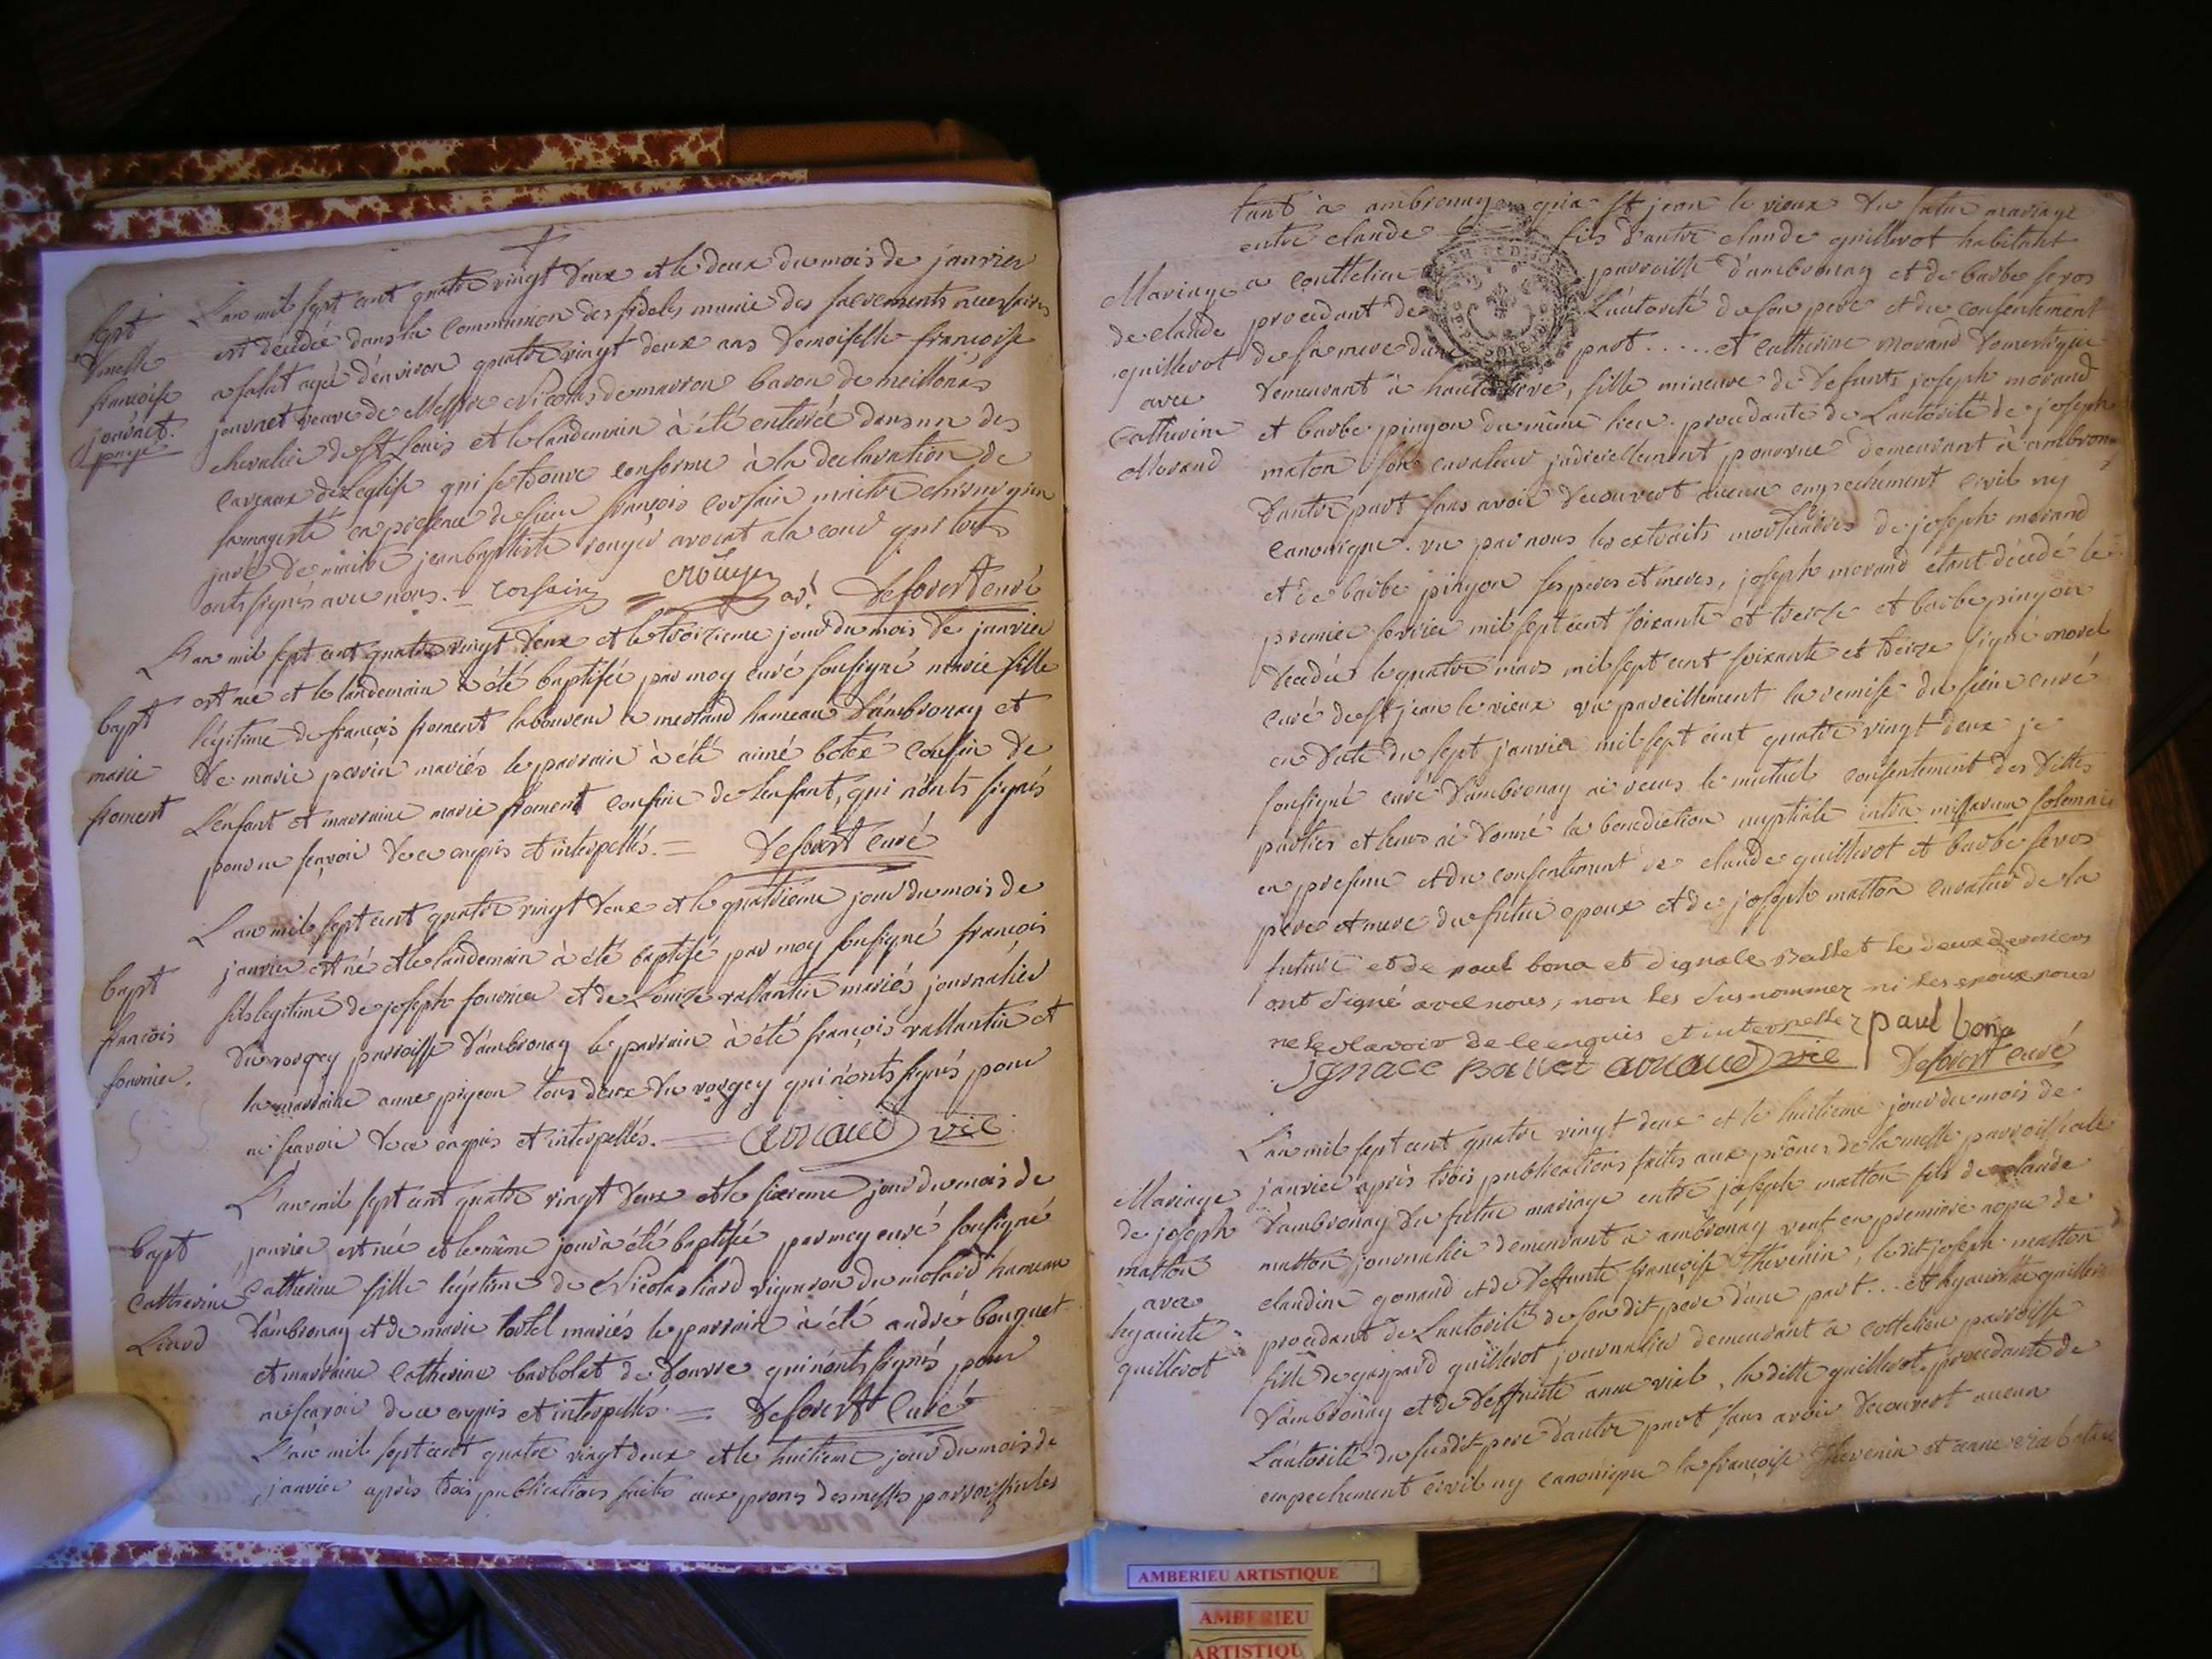 sept
Dmelle
françoise
journet.
payé
L'an mil sept cent quatre vingt deux et le deux du mois de janvier
est decedée dans la communion des fideles munie des sacrements necessaires
a salut agée d'environ quatre vingt deux ans Demoiselle françoise
journet veuve de Messire Nicolas de marron baron de meillonas
chevalier de St Louis et le landemain à été enterrée dans un des
caveaux de Leglise qui se trouve conforme à la declaration de
sa majesté en presence de sieur françois corsain maitre chirurgien
juré de maitre jean baptiste rouyer avocat a la cour qui touts
onts signés avec nous. = corsain Rouyer av. Deforest curé
bapt
marie
froment
L'an mil sept cent quatre vingt deux et le troizieme jour du mois de janvier
est née et le landemain a été baptisée par moy curé soussigné marie fille
légitime de françois froment laboureur a merland hameau d'ambronay et
de marie perrin mariés le parrain à été aimé botex cousin de
L'enfant et marraine marie froment cousine de L'enfant, qui n'onts signés
pour ne sçavoir de ce enquis et interpellés. = Deforest curé
bapt
françois
fournier.
L'an mil sept cent quatre vingt deux et le quatrieme jour du mois de
janvier est né et le landemain à été baptisé par moy sousigné françois
fils legitime de joseph fournier et de Louize vallantin mariés journalier
du vorgey parroisse d'ambronay le parrain à été françois vallantin et
la marraine anne pigeon tous deux du vorgey qui n'onts signés pour
ne sçavoir de ce enquis et interpellés. = arnaud vic
bapt
catherine
Liard
L'an mil sept cent quatre vingt deux et le sixieme jour du mois de
janvier est née et le même jour à été baptisée par moy curé sousigné
Catherine fille légitime de Nicolas liard vigneron du molard hameau
d'ambronay et de marie tortel mariés le parrain à été andré bouquet
et marraine catherine barbolat de douvre qui n'onts signés pour
ne sçavoir de ce enquis et interpellés. = Deforest curé
L'an mil sept cent quatre vingt deux et le huitieme jour du mois de
janvier après trois publications faites aux prones des messes parroissiales
tant à ambronay qu'a St jean le vieux du futur mariage
entre claude fils d'autre claude guillerot habitant
Mariage
de claude
guillerot
avec
Catherine
Morand
a coutteliue parroisse d'ambronay et de barbe seros
procedant de L'autorité de son pere et du consentement
de sa mere d'une part ..... et Catherine morand domestique
demeurant à haute rive, fille mineure de defunts joseph morand
et barbe pinyon du même lieu. procedante de L'autorité de joseph
maton son curateur judiciellement pourvue demeurant à ambronay
d'autre part sans avoir decouvert aucun empechement civil ny
canonique. vu par nous les extraits mortuaires de joseph morand
et de barbe pinyon ses peres et meres, joseph morand etant décédé le
premier fevrier mil sept cent soixante et treize et barbe pinyon
decedée le quatre mars mil sept cent soixante et treize signé morel
curé de st jean le vieux vu pareillement la remise du sieur curé
en date du sept janvier mil sept cent quatre vingt deux je
sousigné curé d'ambronay ai recus le mutuel consentement des dittes
parties et leurs ai donné la benediction nuptiale intra missarum solemnia
en presence et du consentement de claude guillerot et barbe seros
pere et mere du futur epoux et de joseph matton curateur de la
future et de paul bona et d'ignace Ballet les deux derniers
ont signé avec nous, non les susnommez ni les epoux pour
ne le sçavoir de ce enquis et interpellez paul bona
Ignace Ballet arnaud vic Deforest curé
Mariage
de joseph
matton
avec
hyacinte
guillerot
L'an mil sept cent quatre vingt deux et le huitieme jour du mois de
janvier après trois publications faites aux prônes de la messe parroissiale
d'ambronay du futur mariage entre joseph matton fils de claude
matton journalier demeurant a ambronay veuf en premiere nopce de
claudine gonand et de deffunte françoise Thevenin, le dit joseph matton
procedant de L'autorité de son dit pere d'une part... et hyacinthe guillerot
fille de gaspard guillerot journalier demeurant a cottelieu parroisse
d'ambronay et de deffunte anne viel, la ditte guillerot procedante de
L'autorité du susdit pere d'autre part sans avoir decouvert aucun
empechement civil ny canonique la françoise Thevenin et anne
AMBERIEU ARTISTIQUE
AMBERIEU
ARTISTIQU